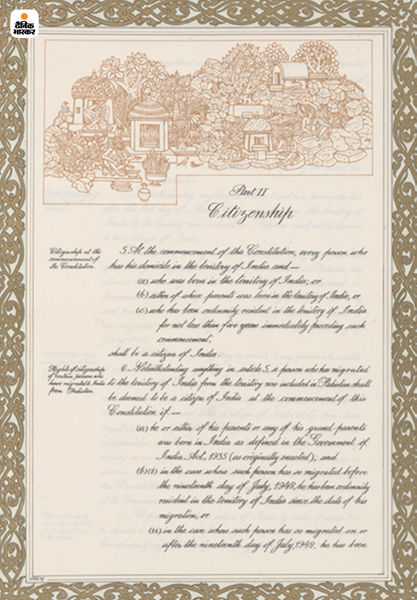 दैनिक
भास्कर
Part II
Citizenship
Citizenship at the
commencement of
the Constitution.
5. At the commencement of this Constitution, every person who
has his domicile in the territory of India and—
(a) who was born in the territory of India; or
(b) either of whose parents was born in the territory of India; or
(c) who has been ordinarily resident in the territory of India
for not less than five years immediately preceding such
commencement,
shall be a citizen of India.
Rights of citizenship
of certain persons who
have migrated to India
from Pakistan.
6. Notwithstanding anything in article 5, a person who has migrated
to the territory of India from the territory now included in Pakistan shall
be deemed to be a citizen of India at the commencement of this
Constitution if—
(a) he or either of his parents or any of his grand-parents
was born in India as defined in the Government of
India Act, 1935 (as originally enacted); and
(b)(i) in the case where such person has so migrated before
the nineteenth day of July, 1948, he has been ordinarily
resident in the territory of India since the date of his
migration, or
(ii) in the case where such person has so migrated on or
after the nineteenth day of July, 1948, he has been